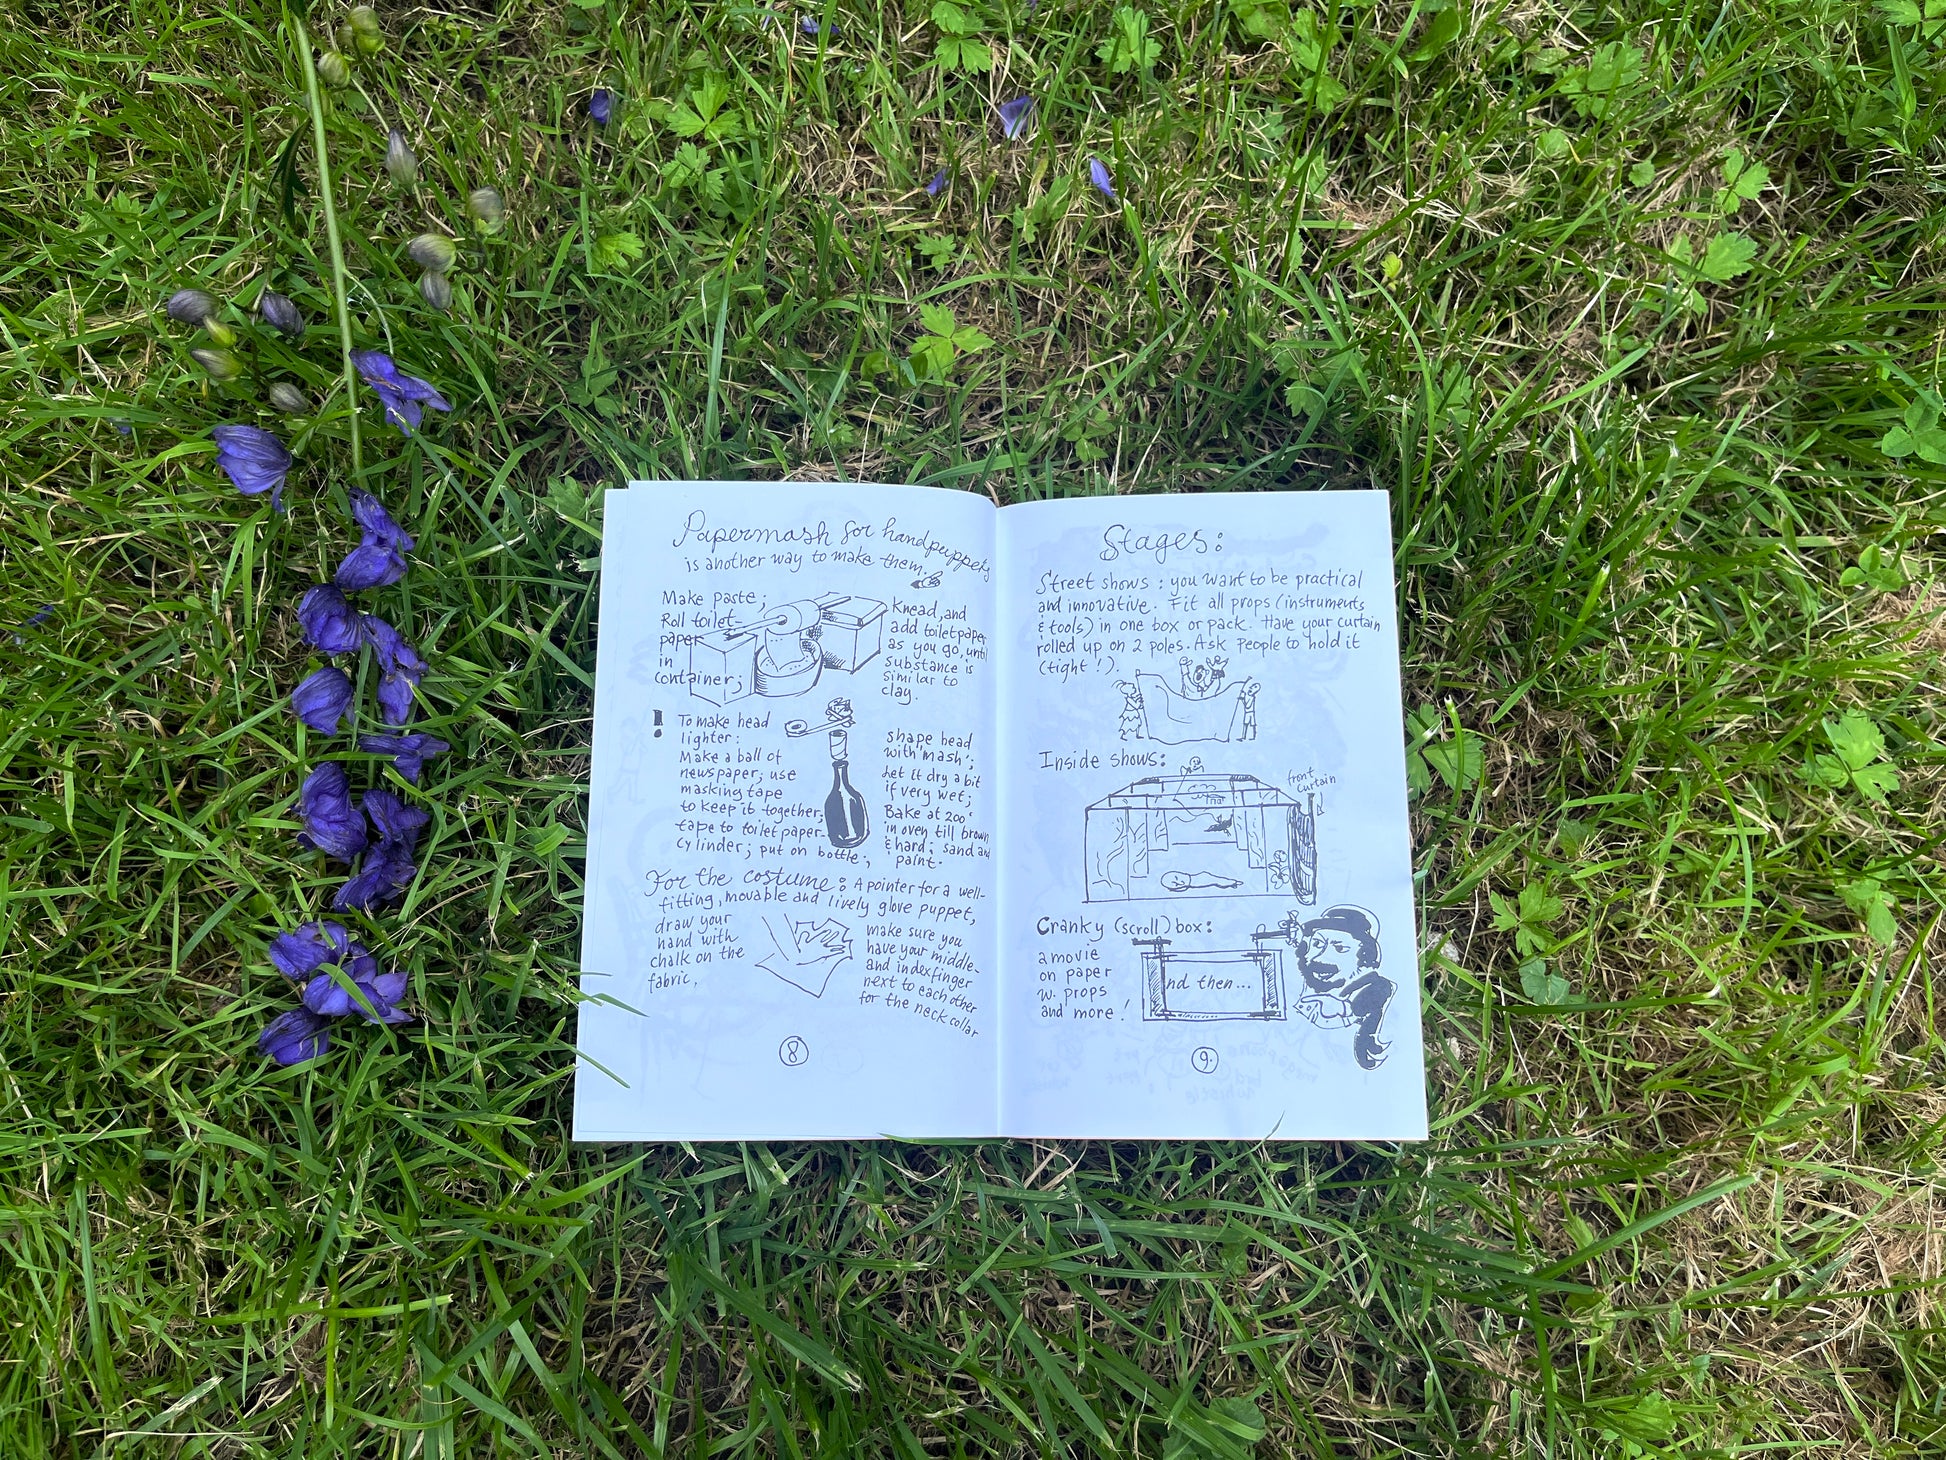 Papermash for handpuppets
is another way to make them.
Make paste;
Roll toilet-
paper
in
container;
Knead, and
add toiletpaper
as you go, until
substance is
similar to
clay.
! To make head
lighter:
Make a ball of
newspaper; use
masking tape
to keep it together;
tape to toiletpaper-
cylinder; put on bottle;
shape head
with 'mash';
Let it dry a bit
if very wet;
Bake at 200°
in oven till brown
& hard; sand and
paint.
For the costume: A pointer for a well-
fitting, movable and lively glove puppet,
draw your
hand with
chalk on the
fabric,
make sure you
have your middle-
and indexfinger
next to each other
for the neck collar
8
Stages:
Street shows: you want to be practical
and innovative. Fit all props (instruments
& tools) in one box or pack. Have your curtain
rolled up on 2 poles. Ask people to hold it
(tight!).
Inside shows:
front
curtain
Cranky (scroll) box:
a movie
on paper
w. props
and more!
nd then...
9.